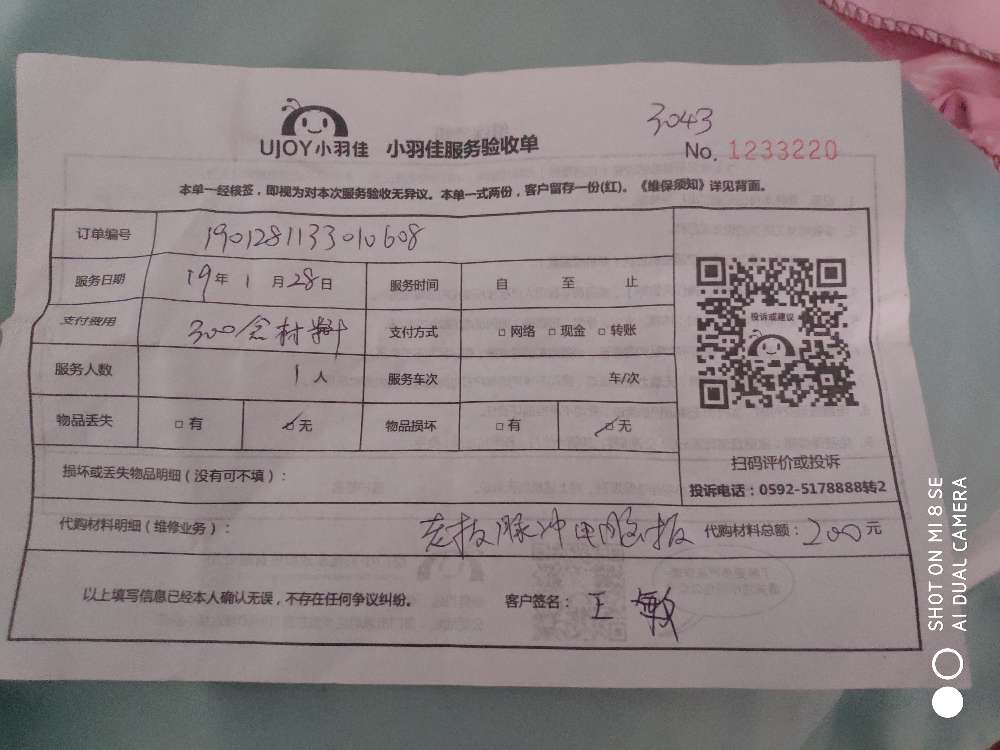 3043
UJOY小羽佳 小羽佳服务验收单 No. 1233220
本单一经核签，即视为对本次服务验收无异议。本单一式两份，客户留存一份(红)。《维保须知》详见背面。
订单编号 1901281133010608
服务日期 19年 1 月28日 服务时间 自 至 止
支付费用 300含材料 支付方式 □网络 □现金 □转账
投诉或建议
服务人数 1人 服务车次 车/次
物品丢失 □有 ☑无 物品损坏 □有 ☑无
扫码评价或投诉
损坏或丢失物品明细（没有可不填）：
投诉电话：0592-5178888转2
代购材料明细（维修业务）： 脉冲电脑板 代购材料总额：200元
以上填写信息已经本人确认无误，不存在任何争议纠纷。 客户签名：王敏
SHOT ON MI 8 SE
AI DUAL CAMERA